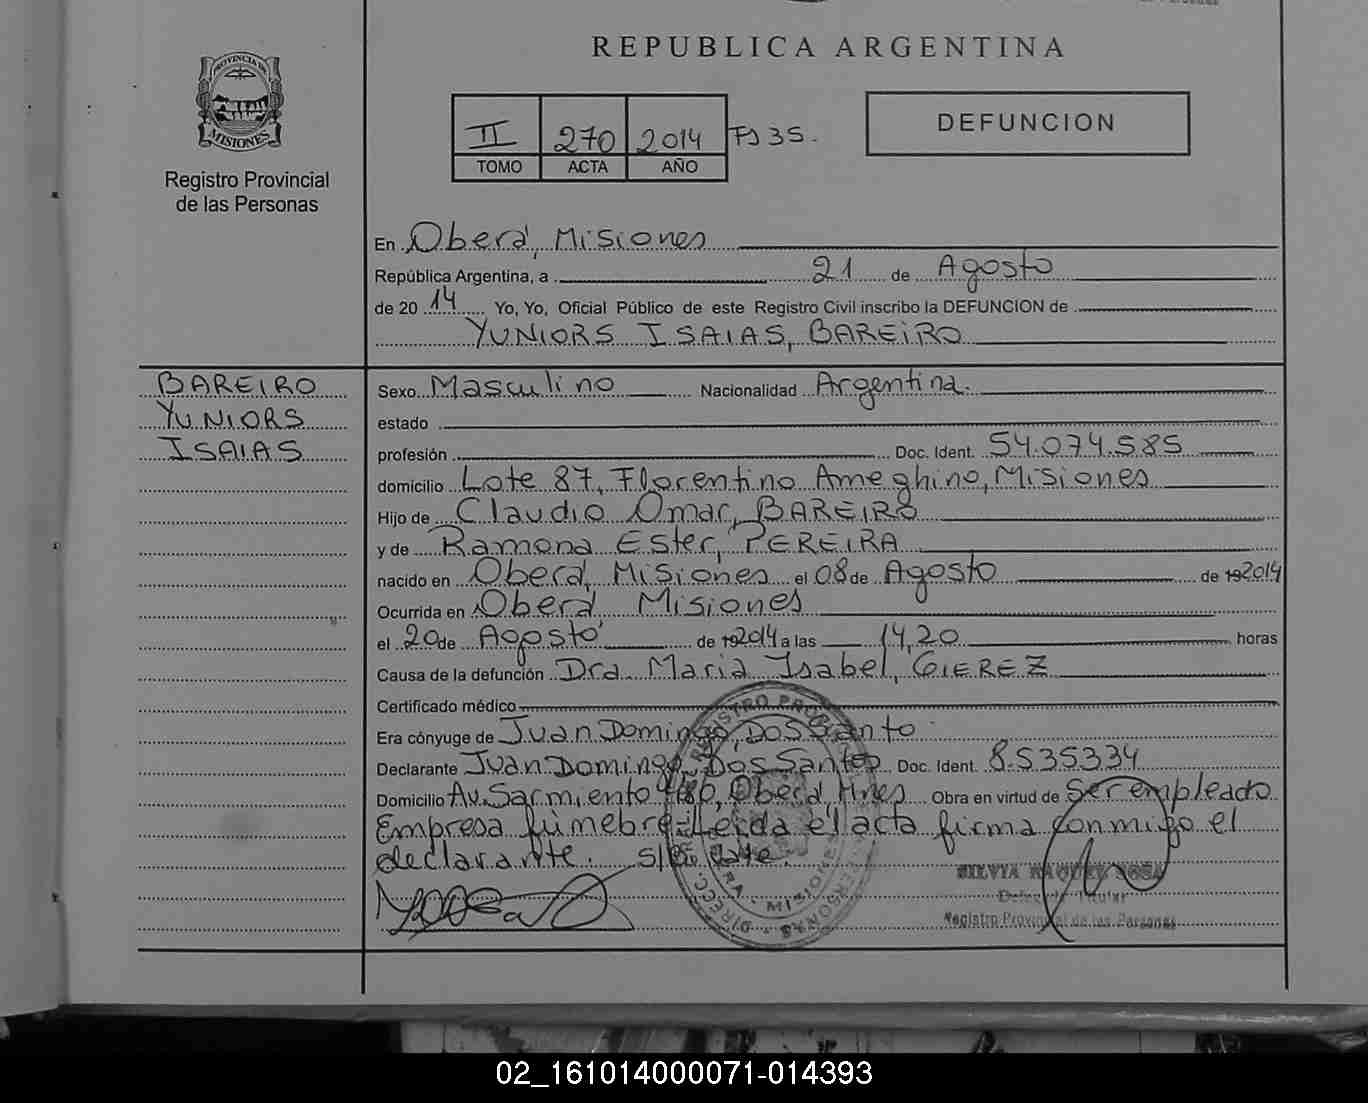 REPUBLICA ARGENTINA
PROVINCIA DE
MISIONES
Registro Provincial
de las Personas
II 270 2014 Fs 35.
TOMO ACTA AÑO
DEFUNCION
En Oberá, Misiones
República Argentina, a 21 de Agosto
de 20 14 Yo, Yo, Oficial Público de este Registro Civil inscribo la DEFUNCION de
YUNIORS ISAIAS, BAREIRO
BAREIRO
YUNIORS
ISAIAS
Sexo Masculino Nacionalidad Argentina.
estado
profesión Doc. Ident. 54.074.585
domicilio Lote 87, Florentino Ameghino, Misiones
Hijo de Claudio Omar, BAREIRO
y de Ramona Ester, PEREIRA
nacido en Oberá, Misiones el 08 de Agosto de 19 2014
Ocurrida en Oberá Misiones
el 20 de Agosto de 19 2014 a las 14,20 horas
Causa de la defunción Dra. Maria Isabel, GIEREZ
Certificado médico
Era cónyuge de Juan Domingo, Dos Santo
Declarante Juan Domingo, Dos Santos Doc. Ident. 8.535.334
Domicilio Av. Sarmiento Oberá, Mnes Obra en virtud de ser empleado
Empresa fúnebre Leída el acta firma conmigo el
declarante. S/B: vate.
SILVIA RAQUEL SOSA
Delegada Titular
Registro Provincial de las Personas
02_161014000071-014393